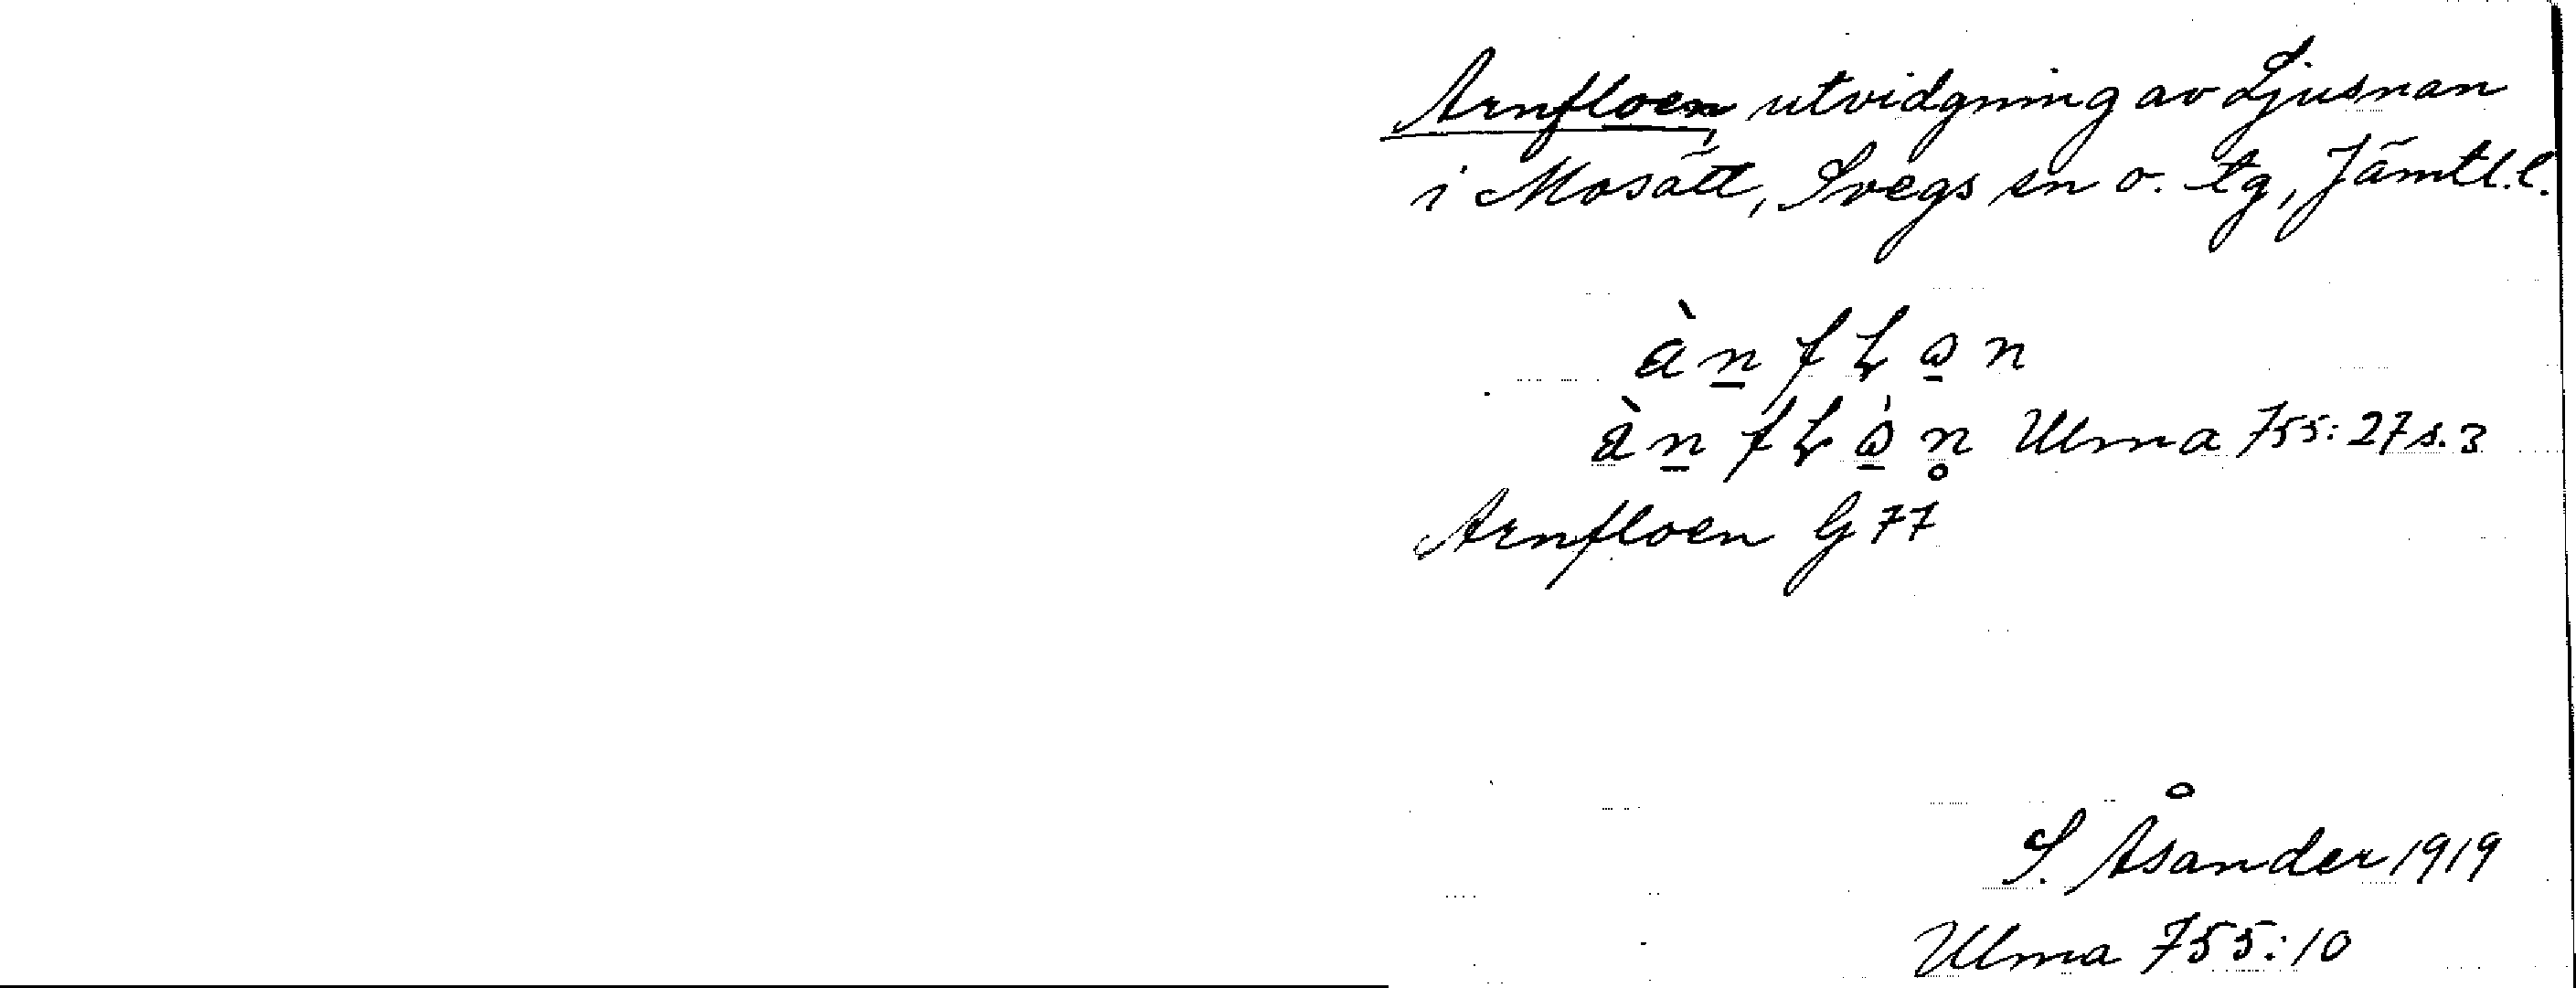 Arnfloen utvidgning av Ljusnan
i Mosätt, Svegs sn o. tg, Jämtl. l.
Ulma 755:27 s. 3
Arnfloen G 77
S. Åsander 1919
Ulma 755:10